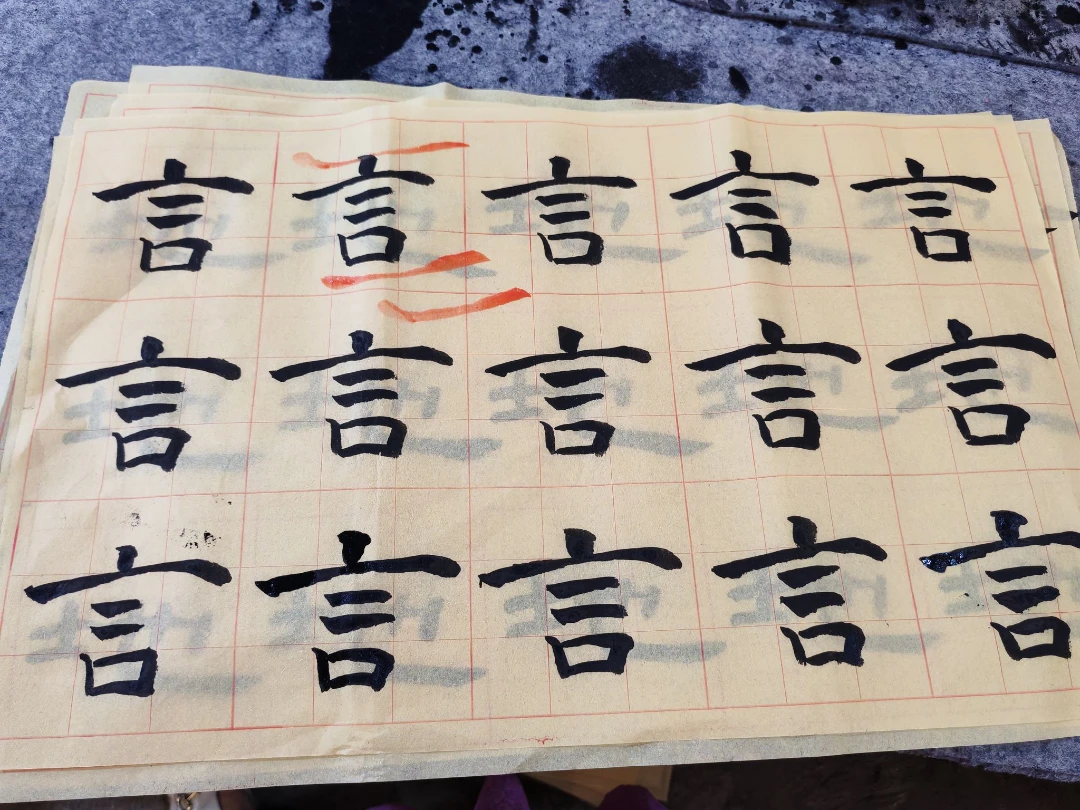 言言言言言
言言言言言
言言言言言